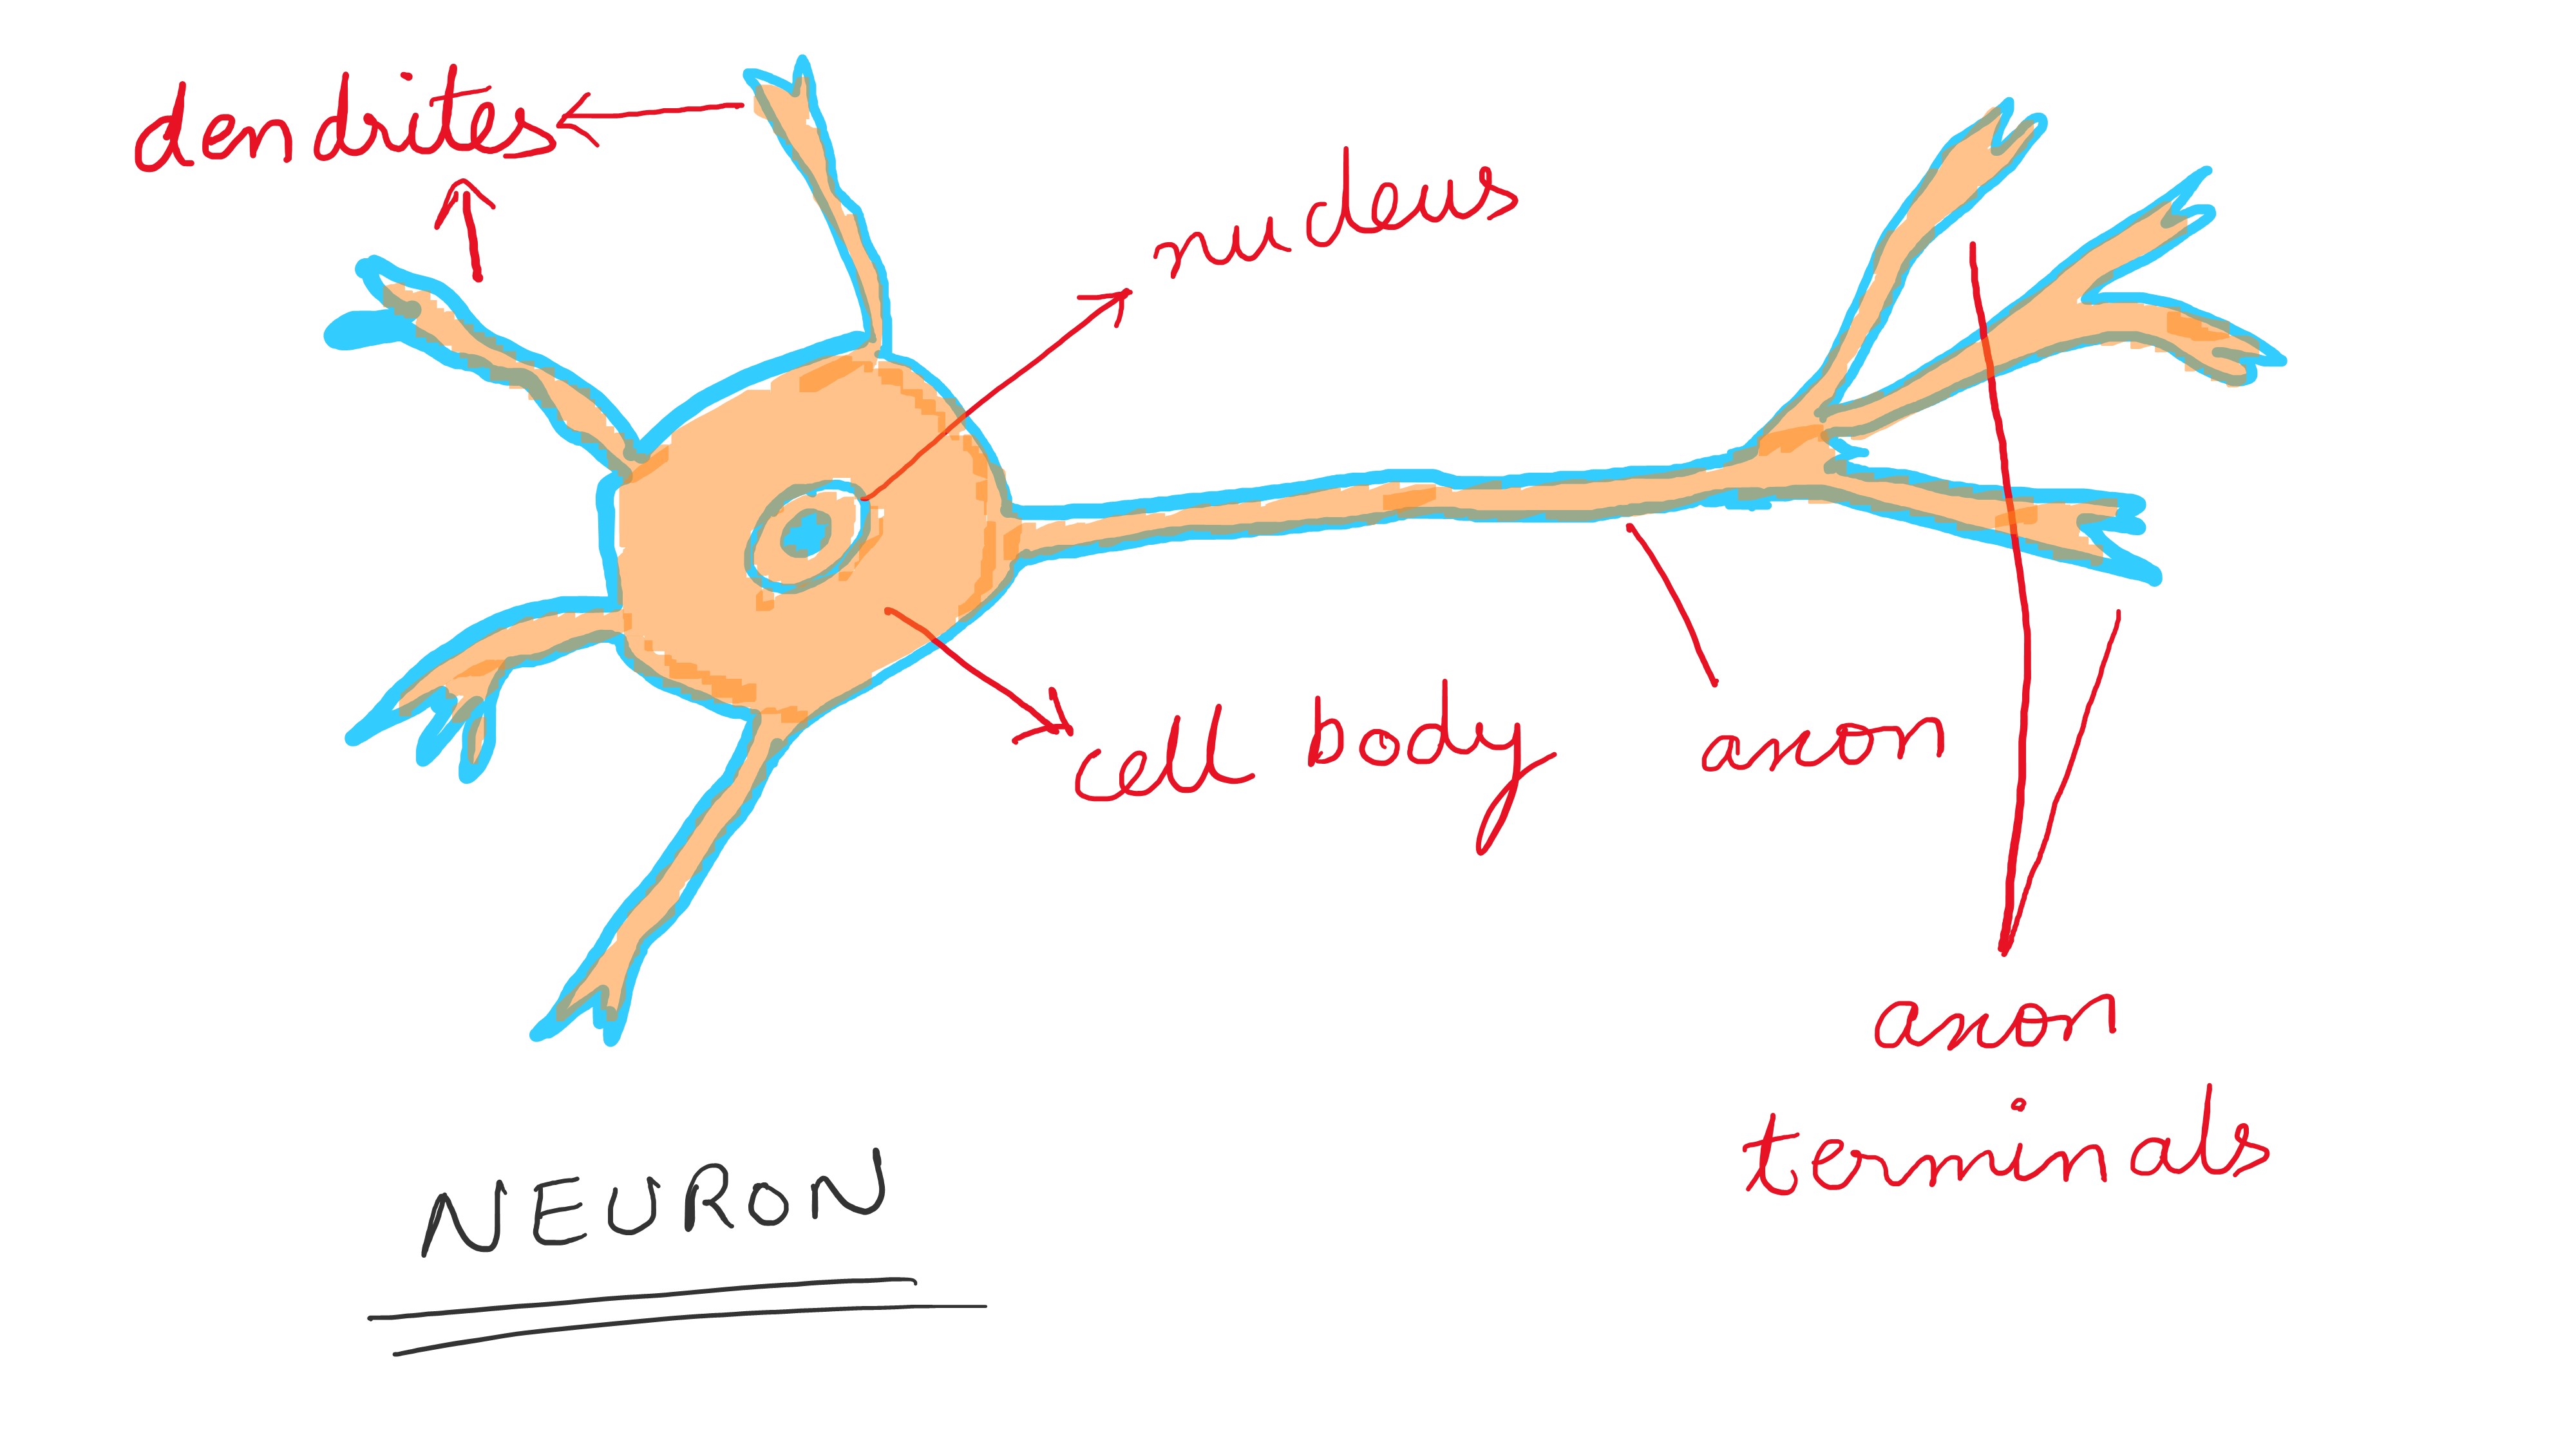 dendrites
nucleus
cell body
axon
axon
terminals
NEURON